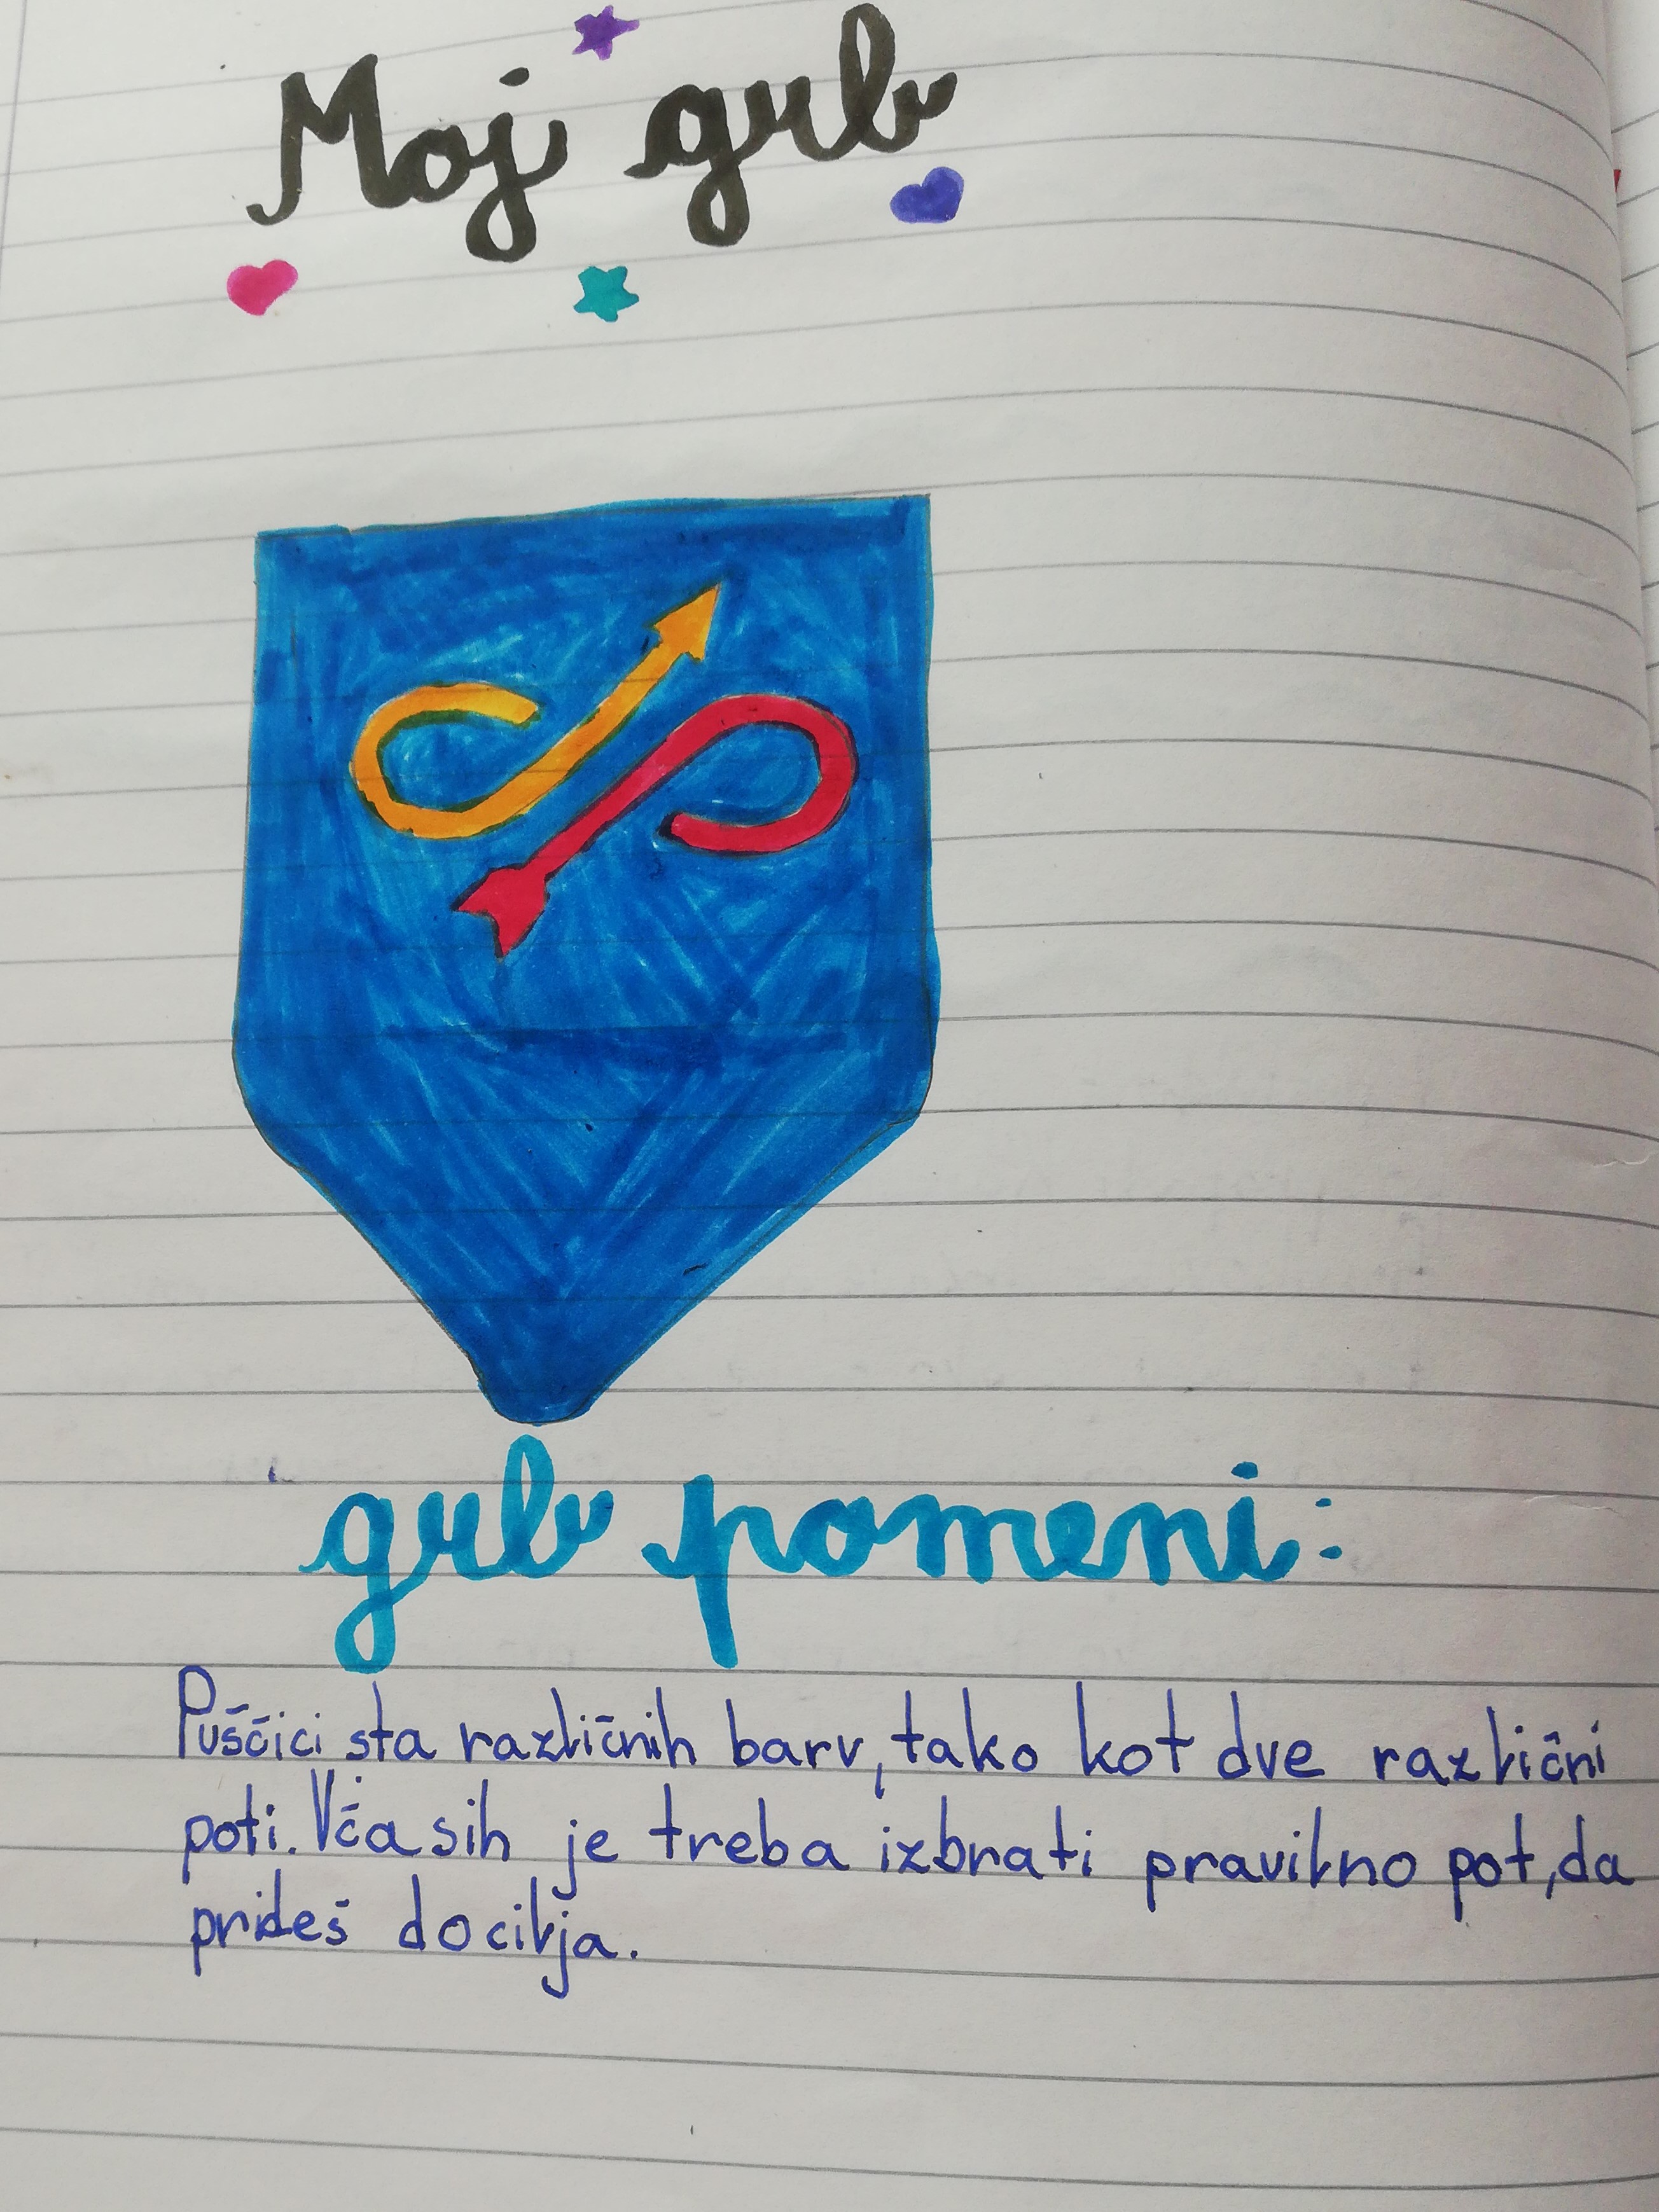 Moj grb
grb pomeni:
Puščici sta različnih barv, tako kot dve različni
poti. Včasih je treba izbrati pravilno pot, da
prideš do cilja.